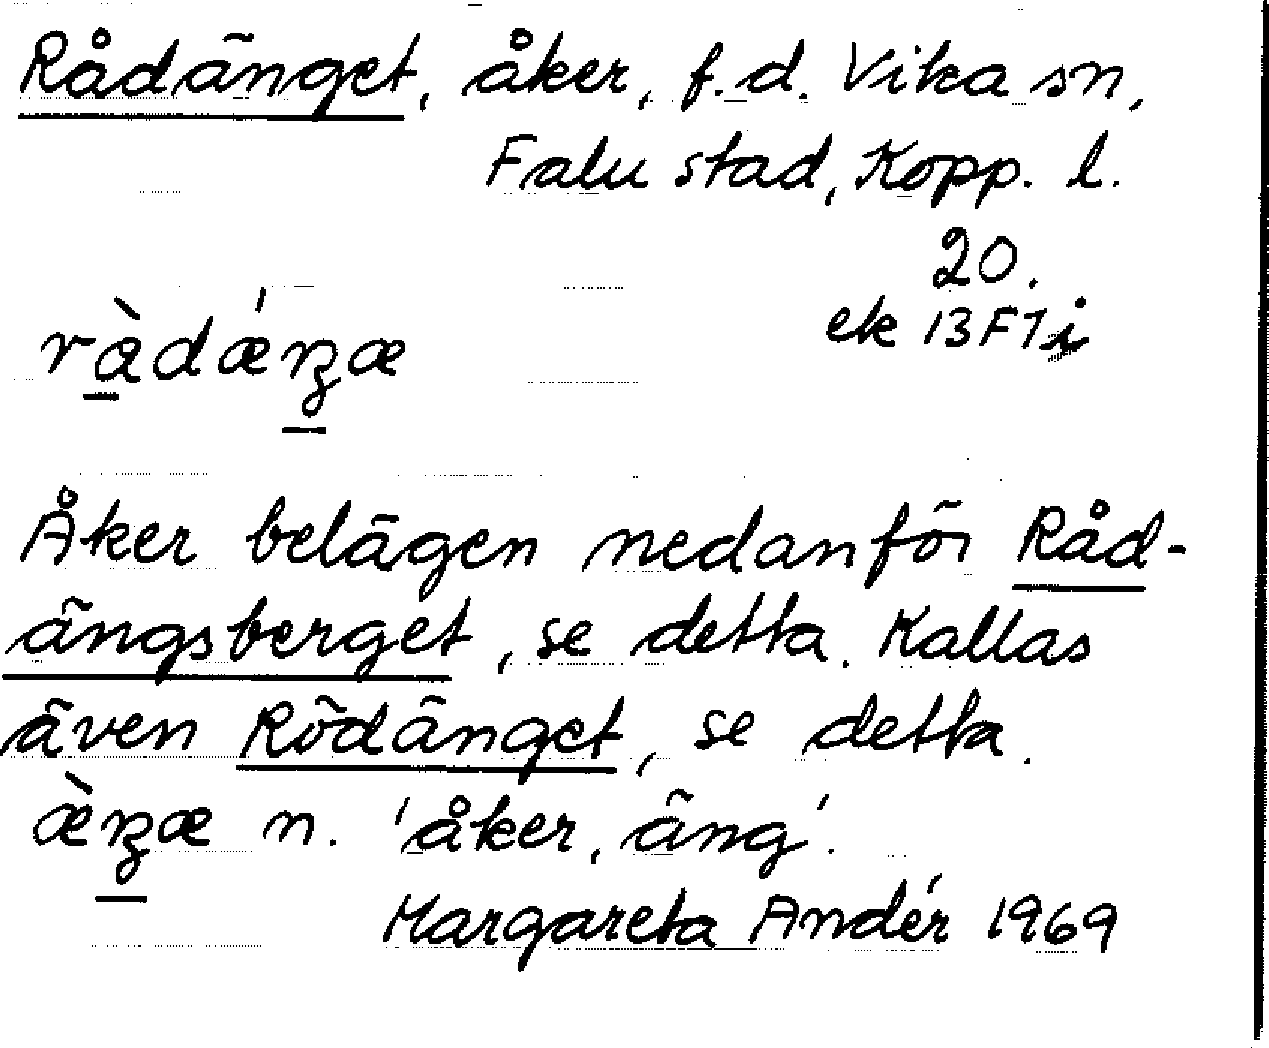 Rådänget, åker, f.d. Vika sn,
Falu stad, Kopp. l.
20.
ek 13F7i
Åker belägen nedanför Råd-
ängsberget, se detta. Kallas
även Rödänget, se detta.
n. 'åker, äng'.
Margareta Andér 1969